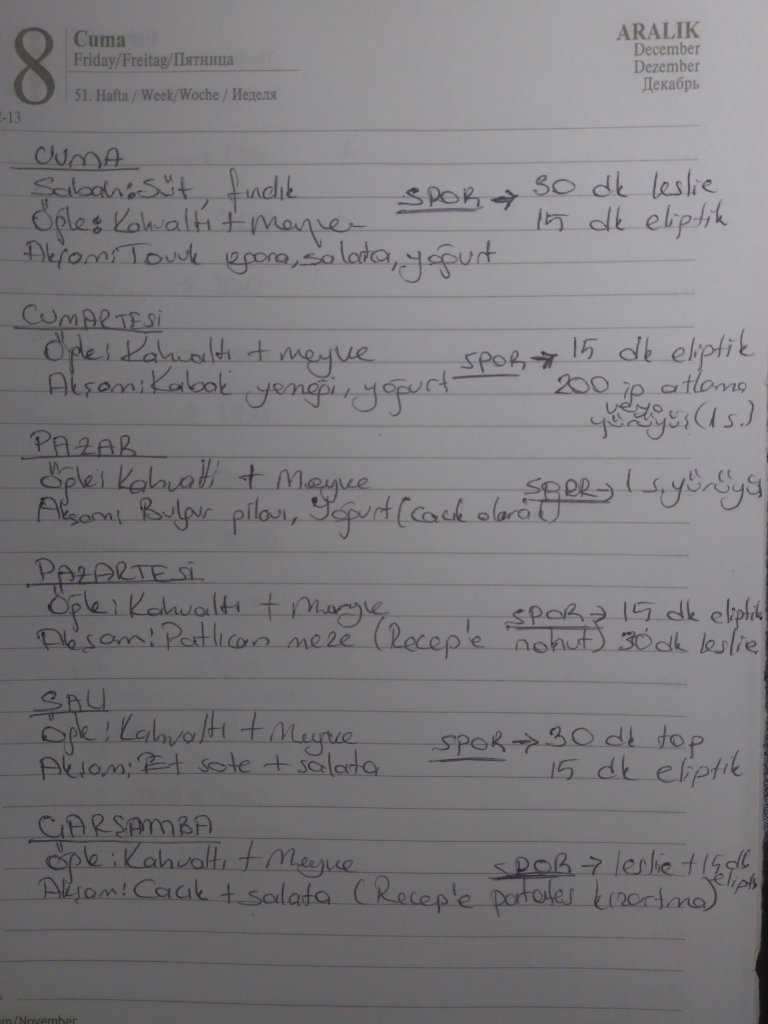 8
Cuma
Friday/Freitag/Пятница
51. Hafta / Week/Woche / Неделя
ARALIK
December
Dezember
Декабрь
-13
CUMA
Sabah: Süt, fındık SPOR → 30 dk leslie
Öğle: Kahvaltı + Meyve 15 dk eliptik
Akşam: Tavuk ızgara, salata, yoğurt
CUMARTESİ
Öğle: Kahvaltı + meyve SPOR → 15 dk eliptik
Akşam: Kabak yemeği, yoğurt 200 ip atlama
veya
yürüyüş (1 s.)
PAZAR
Öğle: Kahvaltı + Meyve SPOR → 1 s. yürüyüş
Akşam: Bulgur pilavı, Yoğurt (cacık olarak)
PAZARTESİ
Öğle: Kahvaltı + Meyve SPOR → 15 dk eliptik
Akşam: Patlıcan meze (Recep'e nohut) 30 dk leslie
SALI
Öğle: Kahvaltı + Meyve SPOR → 30 dk top
Akşam: Et sote + salata 15 dk eliptik
ÇARŞAMBA
Öğle: Kahvaltı + Meyve SPOR → leslie + 15 dk
eliptik
Akşam: Cacık + salata (Recep'e patates kızartma)
/November